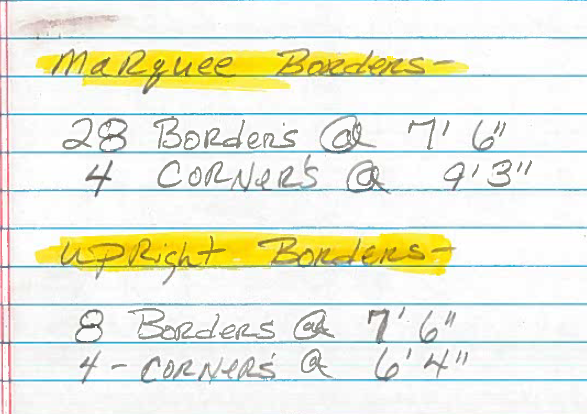 MaRquee Borders-
28 Border's @ 7' 6"
4 CORNeR's @ 9' 3"
upRight Borders-
8 Borders @ 7' 6"
4 - CORNeRs' @ 6' 4"